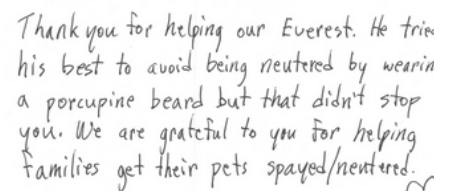 Thank you for helping our Everest. He trie
his best to avoid being neutered by wearin
a porcupine beard but that didn't stop
you. We are grateful to you for helping
families get their pets spayed/neutered.